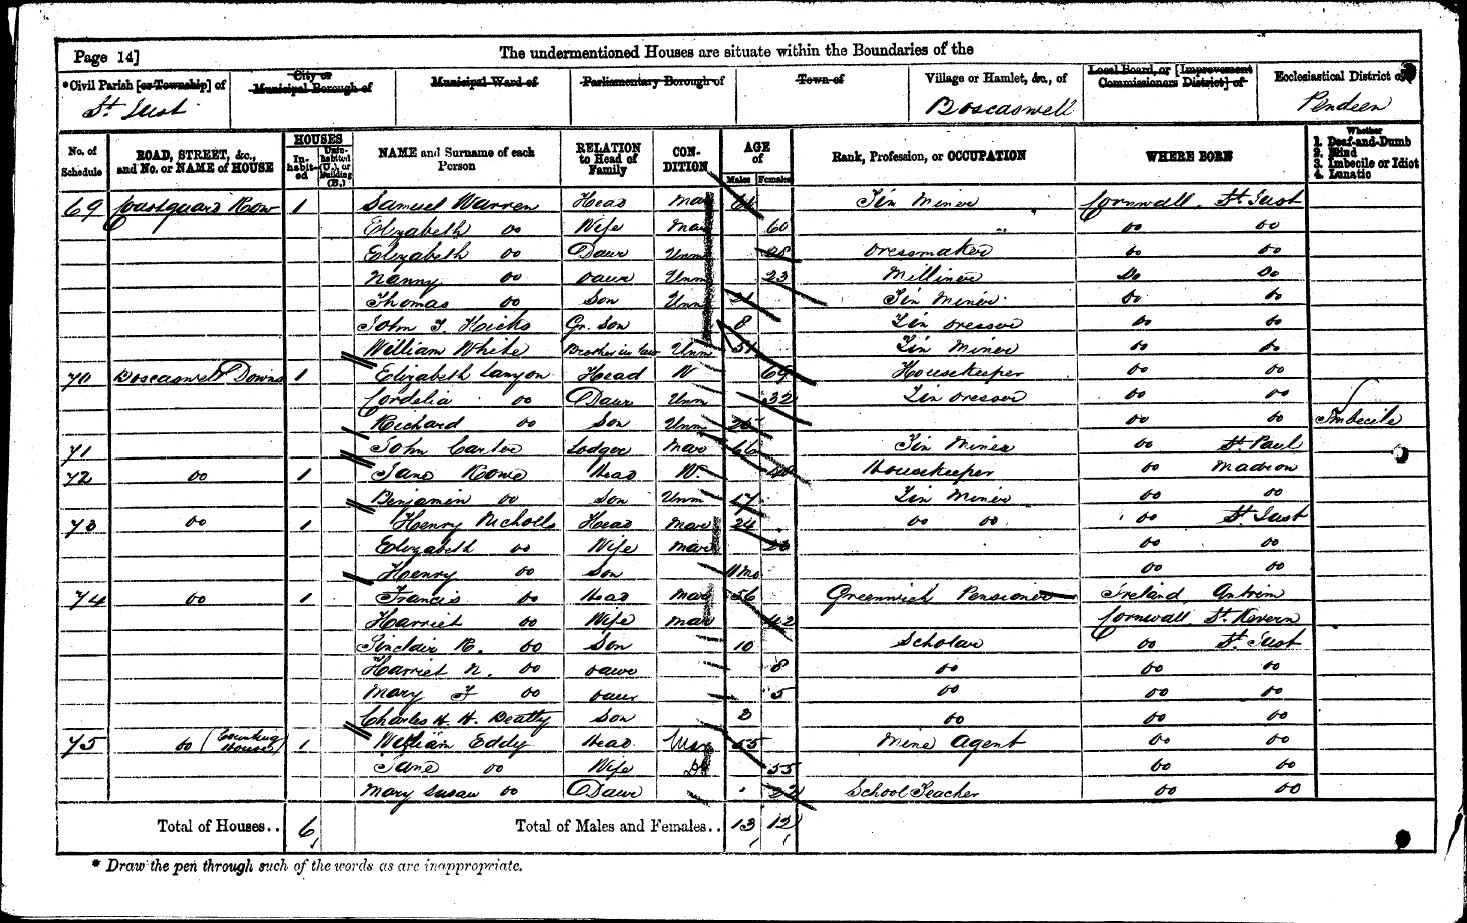 Page 14]
The undermentioned Houses are situate within the Boundaries of the
*Civil Parish [or Township] of City or Municipal Borough of Municipal Ward of Parliamentary Borough of Town of Village or Hamlet, &c., of Local Board, or [Improvement Commissioners District] of Ecclesiastical District of
St. Just Boscaswell Pendeen
No. of Schedule ROAD, STREET, &c., and No. or NAME of HOUSE HOUSES In-habit-ed Unin-habited (U.), or Building (B.) NAME and Surname of each Person RELATION to Head of Family CON-DITION AGE of Males Females Rank, Profession, or OCCUPATION WHERE BORN Whether 1. Deaf-and-Dumb 2. Blind 3. Imbecile or Idiot 4. Lunatic
69 Coastguard Row 1 Samuel Warren Head Mar Tin Miner Cornwall St. Just
Elizabeth Do Wife Mar 60 " Do Do
Elizabeth Do Daur Unm 28 Dressmaker Do Do
Nanny Do Daur Unm 23 Milliner Do Do
Thomas Do Son Unm 21 Tin Miner Do Do
John T. Hicks Gr. Son 8 Tin Dresser Do Do
William White Brother in law Unm 51 Tin Miner Do Do
70 Boscaswell Downs 1 Elizabeth Lanyon Head W 69 Housekeeper Do Do
Cordelia Do Daur Unm 32 Tin Dresser Do Do
Richard Do Son Unm Do Do Imbecile
71 John Carter Lodger Mar 66 Tin Miner Do St. Paul
72 Do 1 Jane Rowe Head W. Housekeeper Do Madron
Benjamin Do Son Unm 17 Tin Miner Do Do
73 Do 1 Henry Nicholls Head Mar 24 Do Do Do St. Just
Elizabeth Do Wife Mar Do Do
Henry Do Son 11 Mo Do Do
74 Do 1 Francis Do Head Mar 56 Greenwich Pensioner Ireland Antrim
Harriet Do Wife Mar 42 Cornwall St. Kevern
Sinclair R. Do Son 10 Scholar Do St. Just
Harriet N. Do Daur 8 Do Do Do
Mary F Do Daur 5 Do Do Do
Charles H. H. Beatty Son Do Do Do
75 Do ( House) 1 William Eddy Head Mar 55 Mine Agent Do Do
Jane Do Wife Do 55 Do Do
Mary Susan Do Daur 22 School Teacher Do Do
Total of Houses.. 6 Total of Males and Females.. 13 12
* Draw the pen through such of the words as are inappropriate.